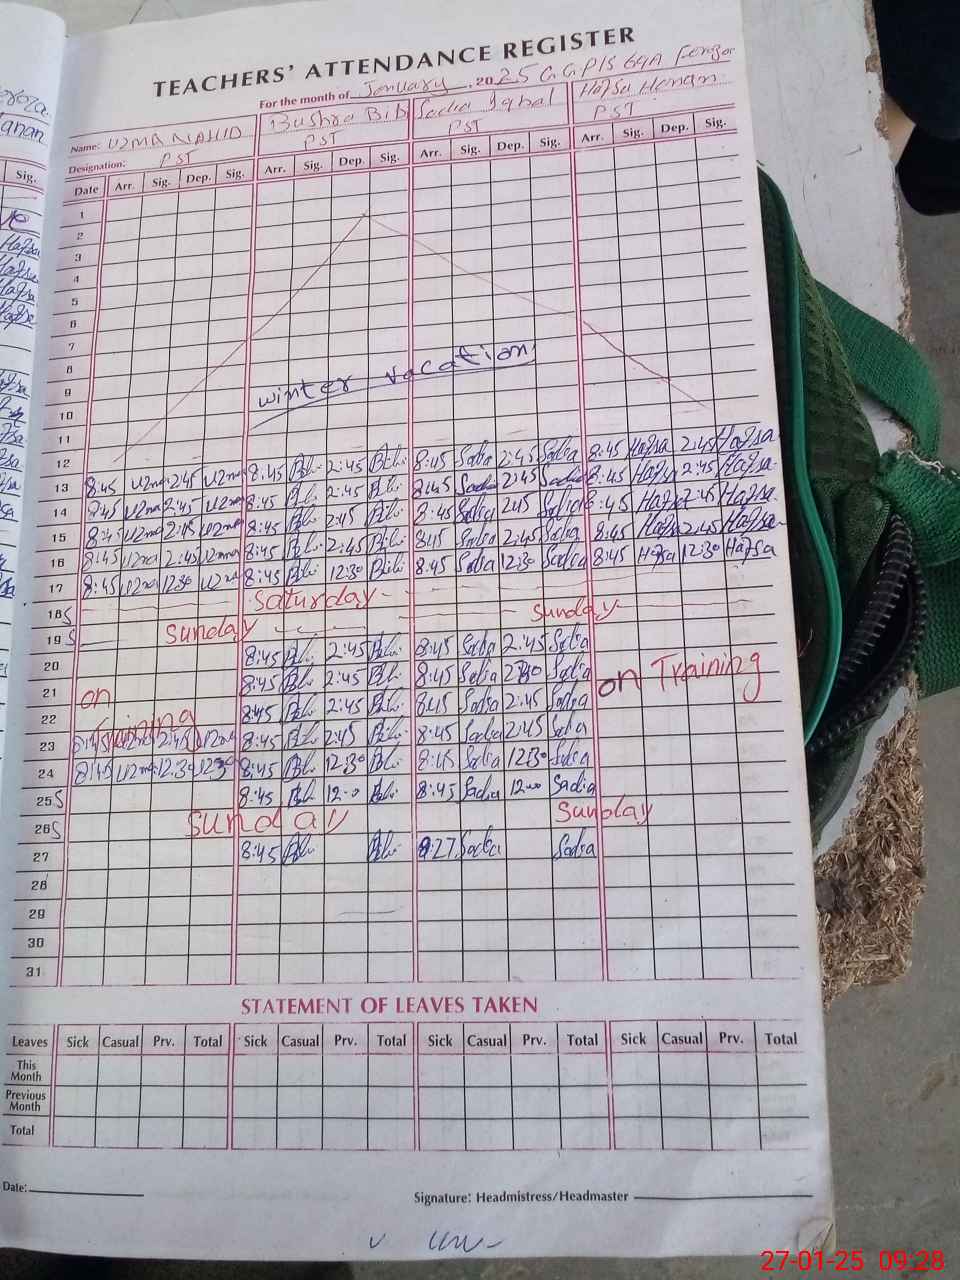 TEACHERS' ATTENDANCE REGISTER
For the month of January 2025 GGPS 69A
Name: UZMA NAHID Bushra Bibi Sadia Iqbal Hafsa Henan
Designation: PST PST PST PST
Date Arr. Sig. Dep. Sig. Arr. Sig. Dep. Sig. Arr. Sig. Dep. Sig. Arr. Sig. Dep. Sig.
1
2
3
4
5
6
7
8
9 winter vacation
10
11
12
13 8:45 Uzma 2:45 Uzma 8:45 Bibi 2:45 Bibi 8:45 Sadia 2:45 Sadia 8:45 Hafsa 2:45 Hafsa
14 8:45 Uzma 2:45 Uzma 8:45 Bibi 2:45 Bibi 8:45 Sadia 2:45 Sadia 8:45 Hafsa 2:45 Hafsa
15 8:45 Uzma 2:45 Uzma 8:45 Bibi 2:45 Bibi 8:45 Sadia 2:45 Sadia 8:45 Hafsa 2:45 Hafsa
16 8:45 Uzma 2:45 Uzma 8:45 Bibi 2:45 Bibi 8:45 Sadia 2:45 Sadia 8:45 Hafsa 2:45 Hafsa
17 8:45 Uzma 12:30 Uzma 8:45 Bibi 12:30 Bibi 8:45 Sadia 12:30 Sadia 8:45 Hafsa 12:30 Hafsa
18 S Saturday
19 S Sunday Sunday
20 8:45 Bibi 2:45 Bibi 8:45 Sadia 2:45 Sadia
21 on 8:45 Bibi 2:45 Bibi 8:45 Sadia Sadia on Training
22 Training 8:45 Bibi 2:45 Bibi 8:45 Sadia 2:45 Sadia
23 8:45 Uzma 2:45 Uzma 8:45 Bibi 2:45 Bibi 8:45 Sadia 2:45 Sadia
24 8:45 Uzma 12:30 8:45 Bibi 12:30 Bibi 8:45 Sadia 12:30 Sadia
25 S 8:45 Bibi 12:00 Bibi 8:45 Sadia 12:00 Sadia
26 S Sunday Sunday
27 8:45 Bibi Bibi 8:27 Sadia Sadia
28
29
30
31
STATEMENT OF LEAVES TAKEN
Leaves Sick Casual Prv. Total Sick Casual Prv. Total Sick Casual Prv. Total Sick Casual Prv. Total
This Month
Previous Month
Total
Date:
Signature: Headmistress/Headmaster
27-01-25 09:28